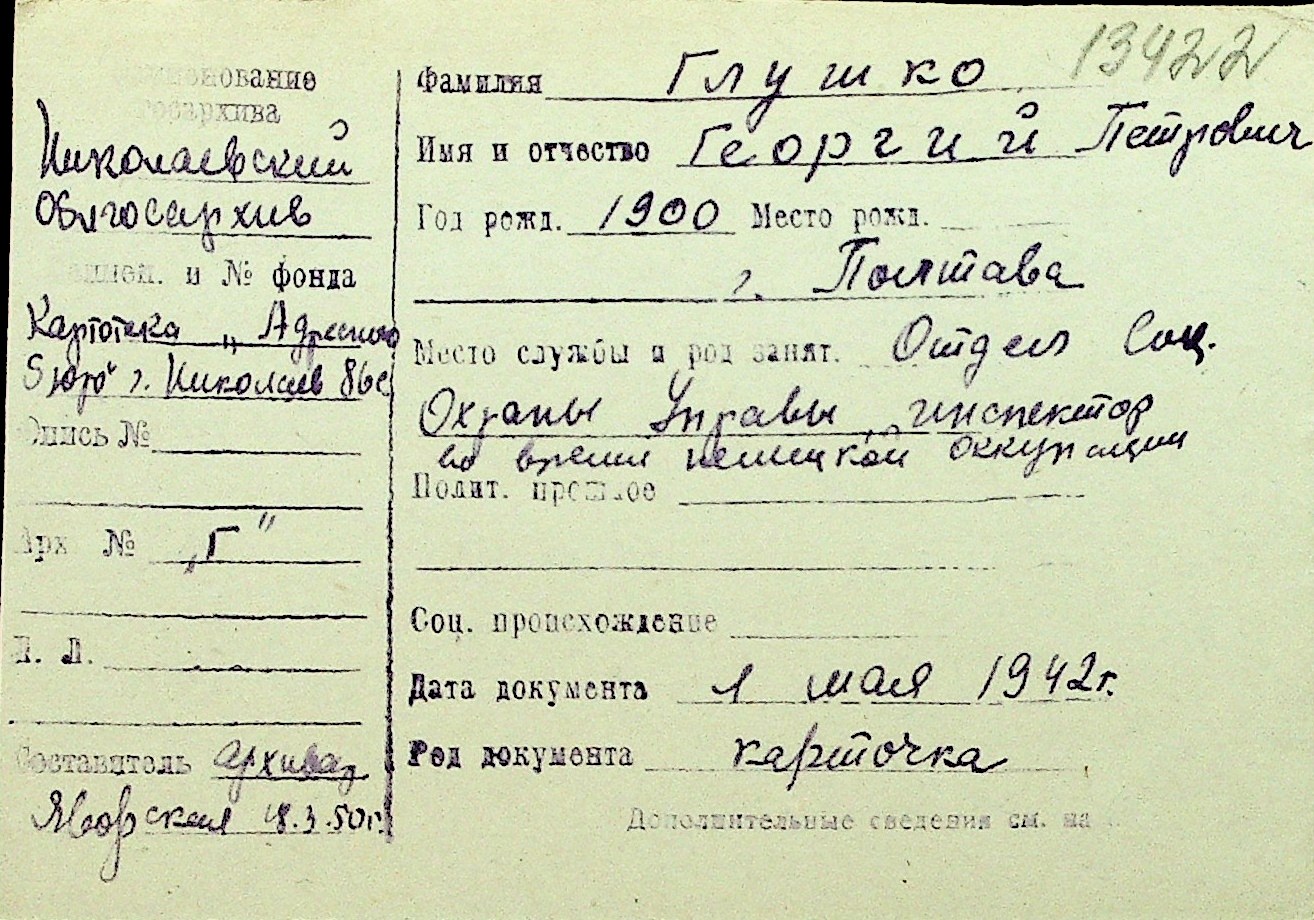 13422
именование
госархива
Николаевский
Облгосархив
и № фонда
Картотека „Адресного
Бюро" г. Николаев
Опись №
Арх №
„Г"
П. Л.
Составитель архивар
Яворская 18.3.50г.
Фамилия Глушко
Имя и отчество Георгий Петрович
Год рожд. 1900 Место рожд.
г. Полтава
Место службы и род занят. Отдел Соц.
Охраны Управы, инспектор
во время немецкой оккупации
Полит. прошлое
Соц. происхождение
Дата документа 1 мая 1942г.
Род документа карточка
Дополнительные сведения см. на